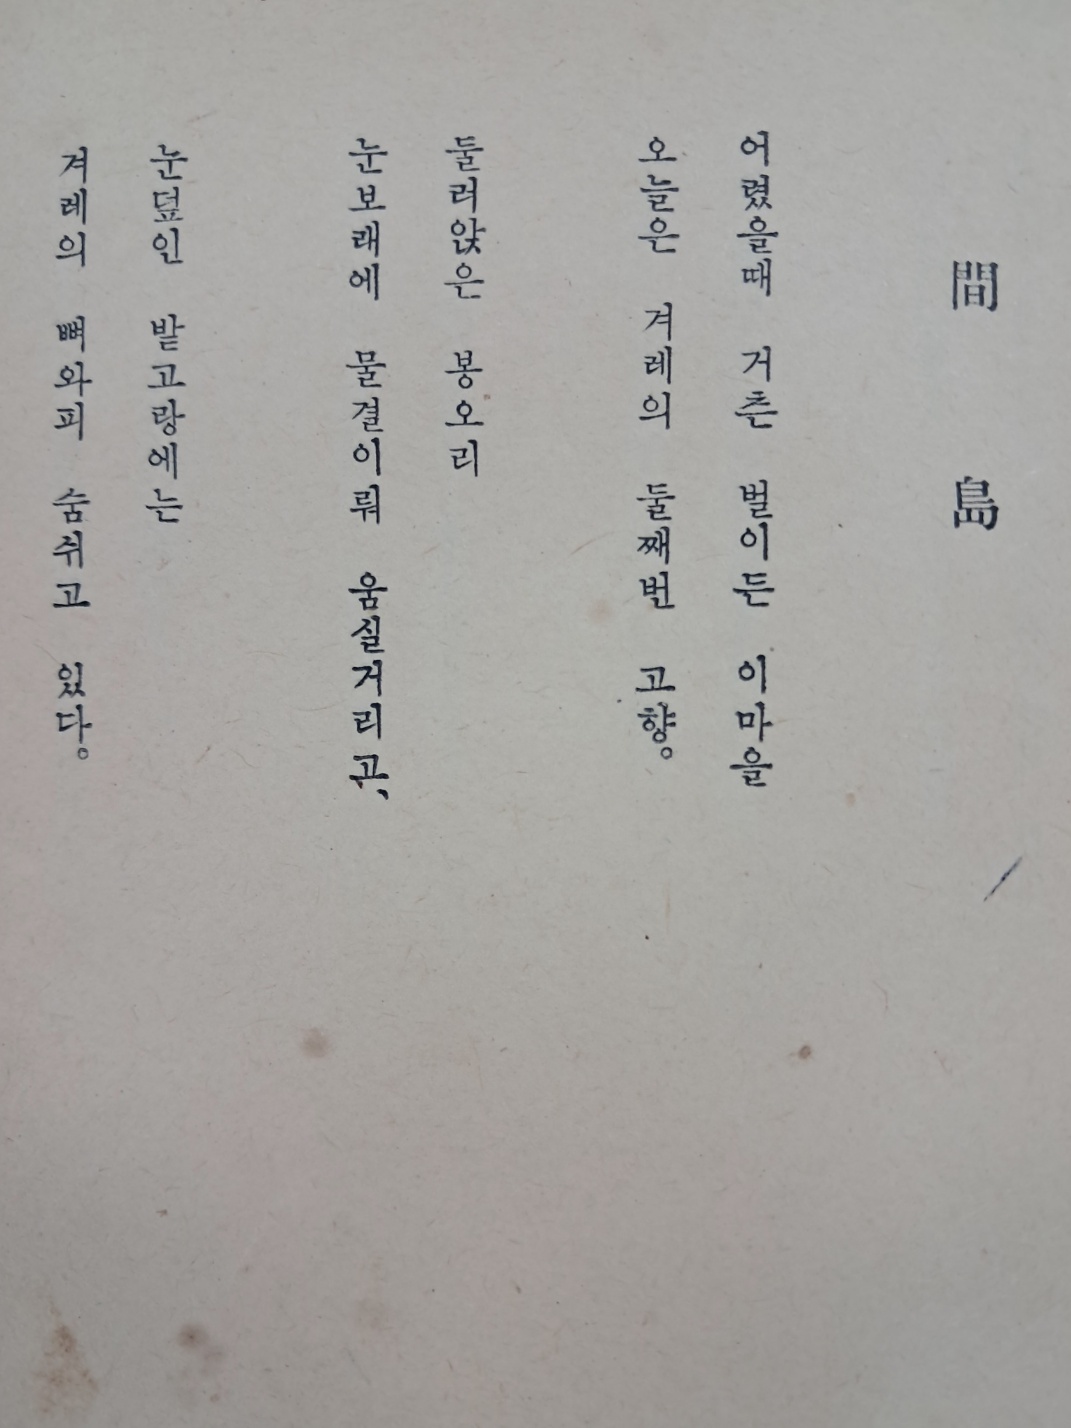 間島
어렸을때 거츤 벌이든 이마을
오늘은 겨레의 둘째번 고향。
둘러앉은 봉오리
눈보래에 물결이뤄 움실거리고、
눈덮인 밭고랑에는
겨레의 뼈와피 숨쉬고 있다。